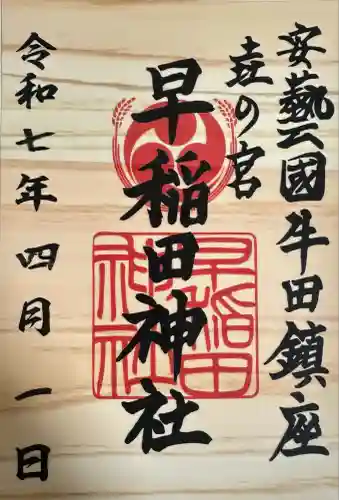 安藝國牛田鎮座
壹の宮
早稲田神社
早稲田
神社
令和七年四月一日